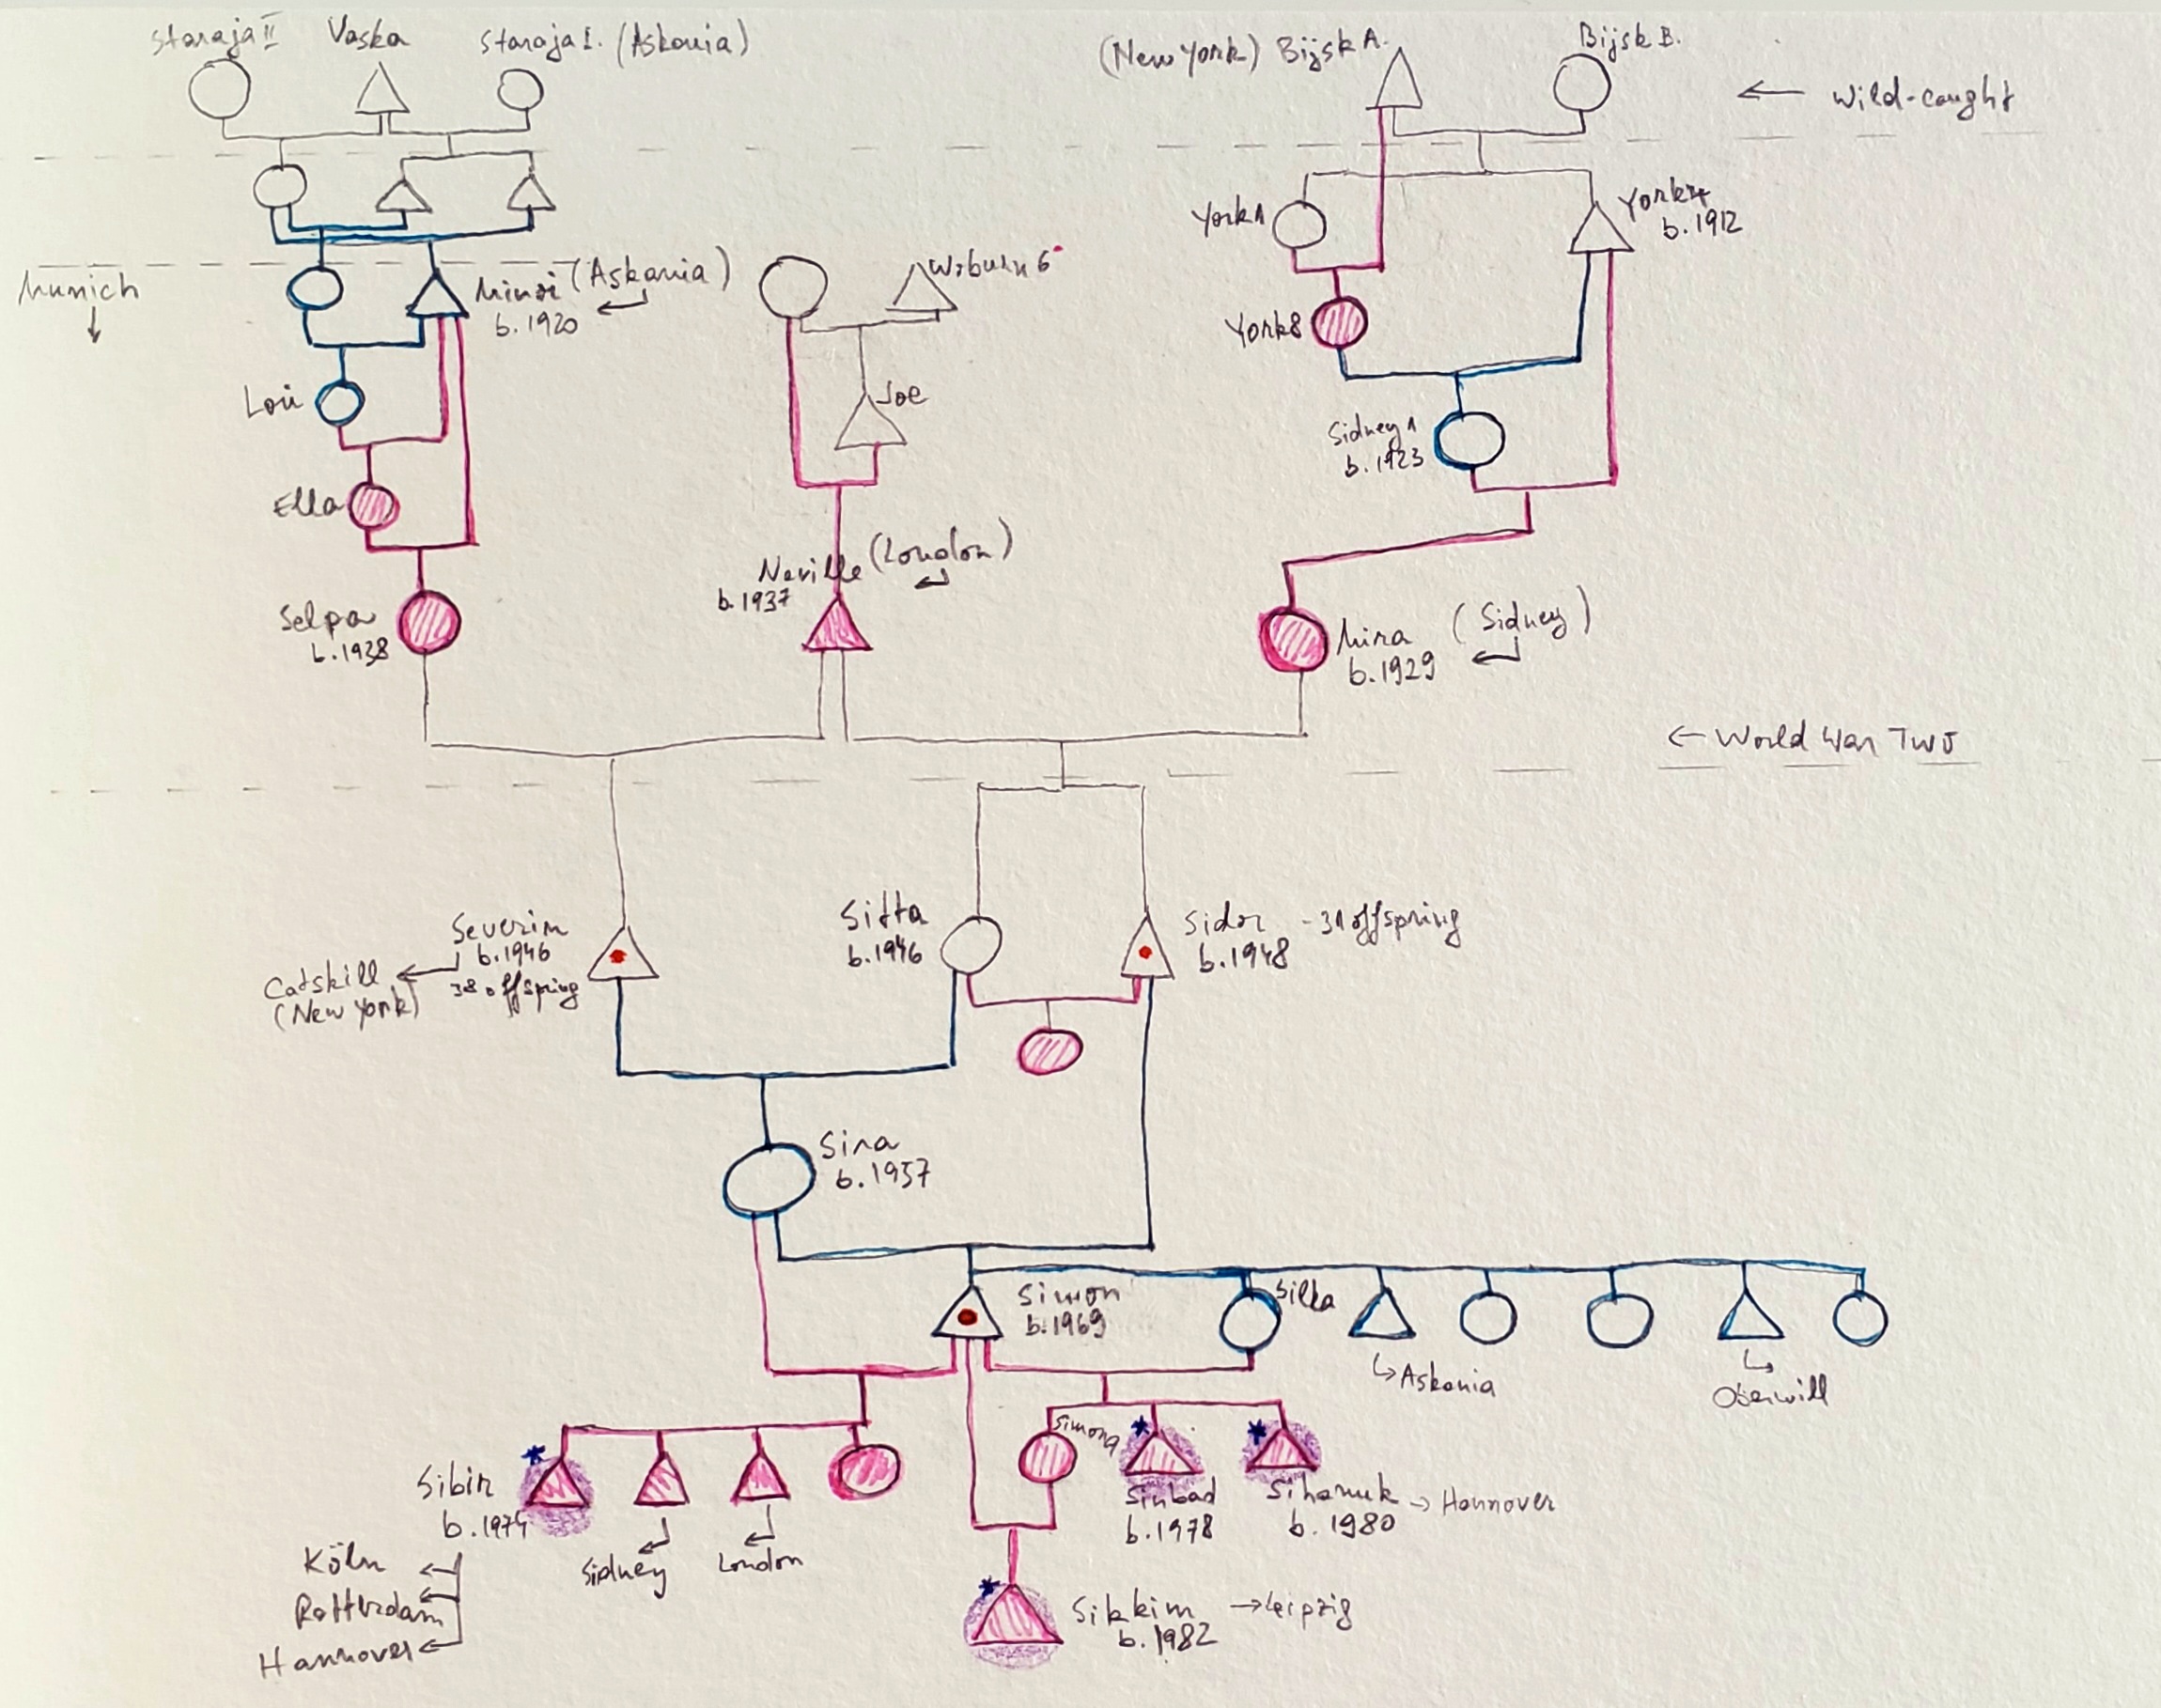 Staraja II Vaska Staraja I. (Askania)
(New York) Bijsk A. Bijsk B.
← Wild-caught
York 1
York 4
b. 1912
Munich
↓
Minzi (Askania)
b. 1920
Woburn 6
York 8
Lori
Joe
Sidney 1
b. 1923
Ella
Neville (London)
b. 1937
Selpa
b. 1938
Mira (Sidney)
b. 1929
← World War Two
Severin
b. 1946
38 offspring
Catskill
(New York)
Sitta
b. 1946
Sidor - 31 offspring
b. 1948
Sina
b. 1957
Simon
b. 1969
Silka
Askania
Oberwill
Simona
Sibir
b. 1974
Sidney
London
Sinbad
b. 1978
Sihanuk → Hannover
b. 1980
Köln
Rotterdam
Hannover
Sikkim → Leipzig
b. 1982